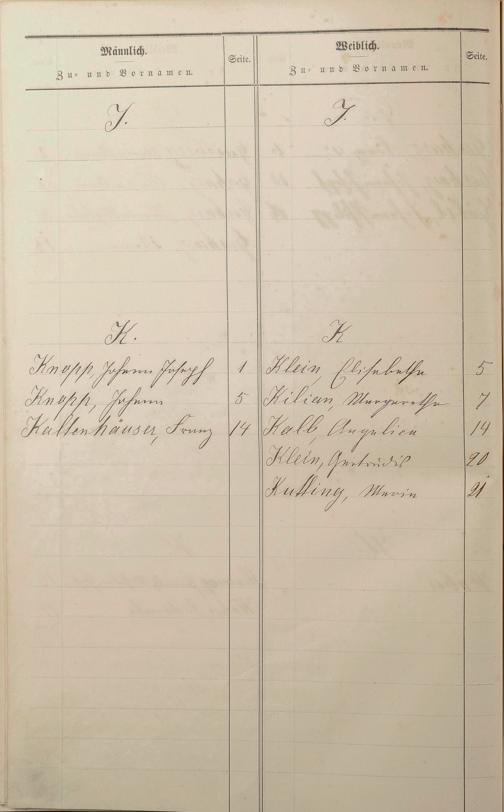 Männlich.
Zu- und Vornamen.
Seite.
J.
K.
Knopp, Johann Joseph 1
Knopp, Johann 5
Kaltenhäuser, Franz 14
Weiblich.
Zu- und Vornamen.
Seite.
J.
K
Klein, Elisabetha 5
Kilian, Margaretha 7
Kalb, Angelica 14
Klein, Gertrudis 20
Maria 21